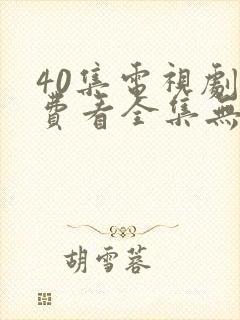 40集電視劇
費看全集無
胡雪蓉